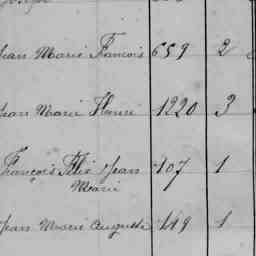 Jean Marie François 659 2
Jean Marie Henri 1220 3
François Félix Jean 707 1
Marie
Jean Marie Auguste 149 1